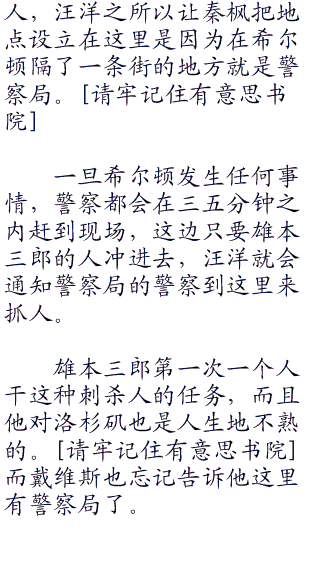 人，汪洋之所以让秦枫把地
点设立在这里是因为在希尔
顿隔了一条街的地方就是警
察局。[请牢记住有意思书
院]
一旦希尔顿发生任何事
情，警察都会在三五分钟之
内赶到现场，这边只要雄本
三郎的人冲进去，汪洋就会
通知警察局的警察到这里来
抓人。
雄本三郎第一次一个人
干这种刺杀人的任务，而且
他对洛杉矶也是人生地不熟
的。[请牢记住有意思书院]
而戴维斯也忘记告诉他这里
有警察局了。